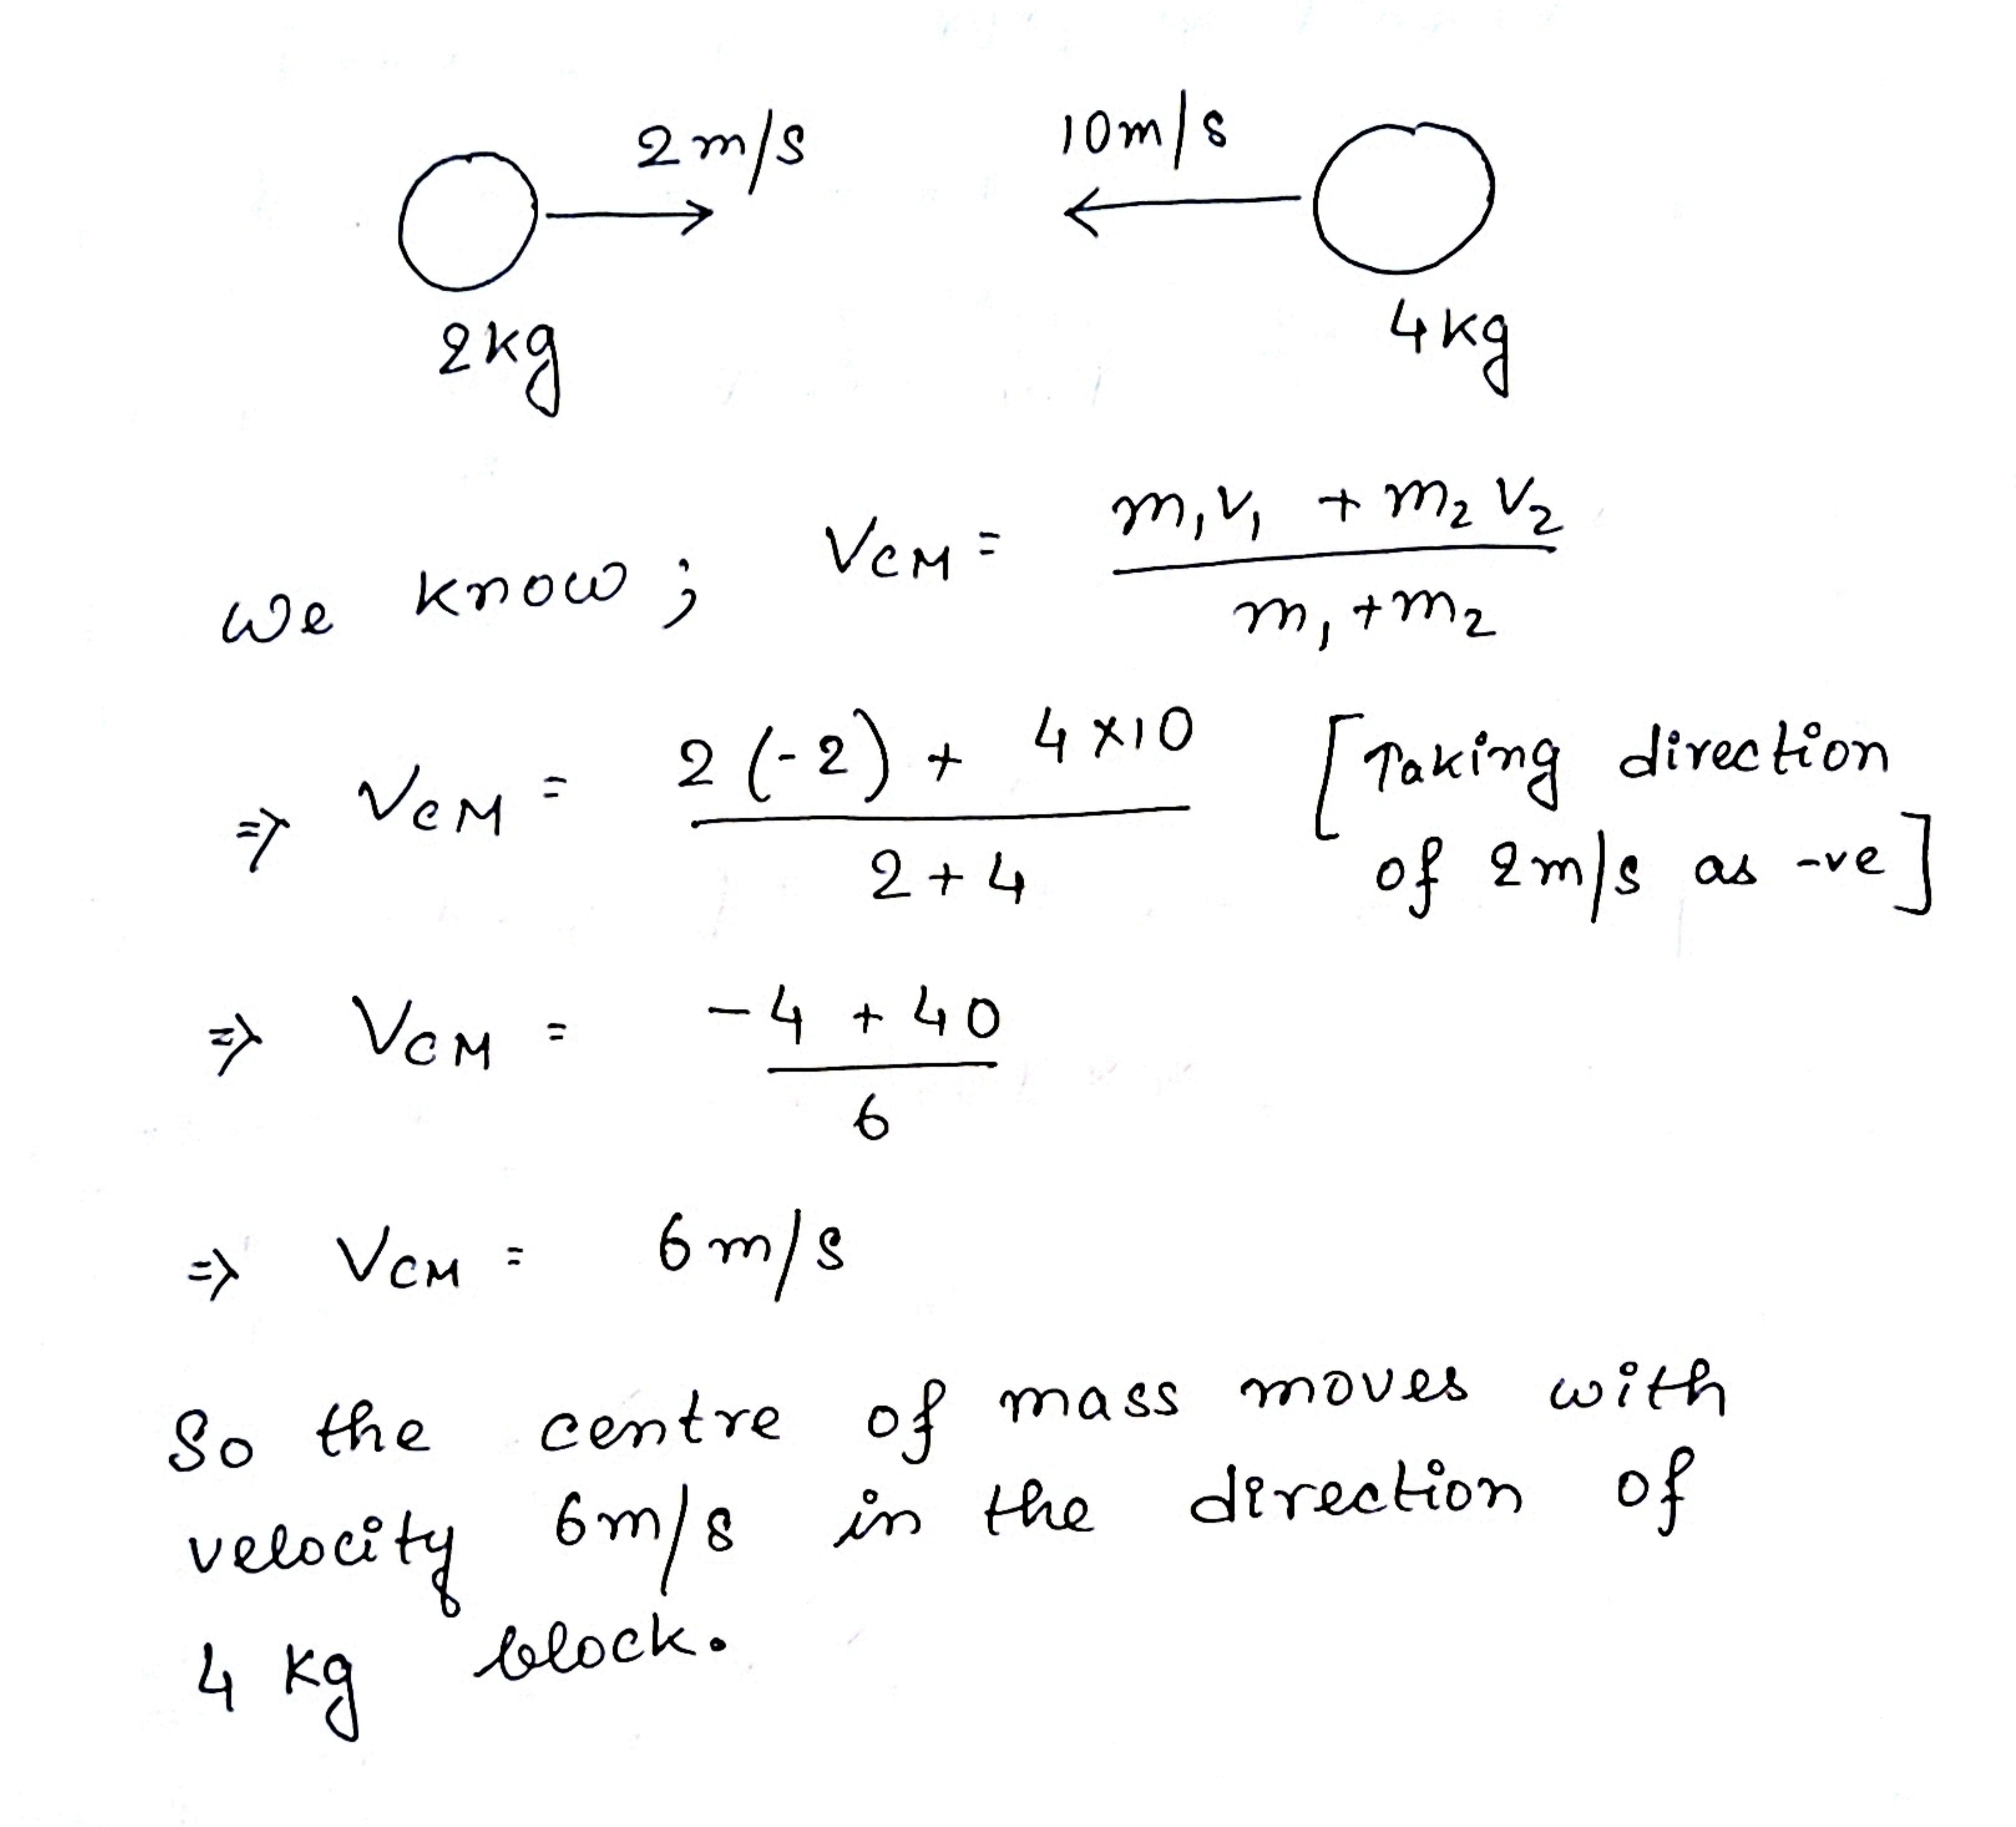 2m/s 10m/s
2kg 4kg
We know; V_CM = (m₁v₁ + m₂v₂)/(m₁+m₂)
⇒ V_CM = (2(-2) + 4×10)/(2+4) [Taking direction
of 2m/s as -ve]
⇒ V_CM = (-4 + 40)/6
⇒ V_CM = 6m/s
So the centre of mass moves with
velocity 6m/s in the direction of
4 kg block.